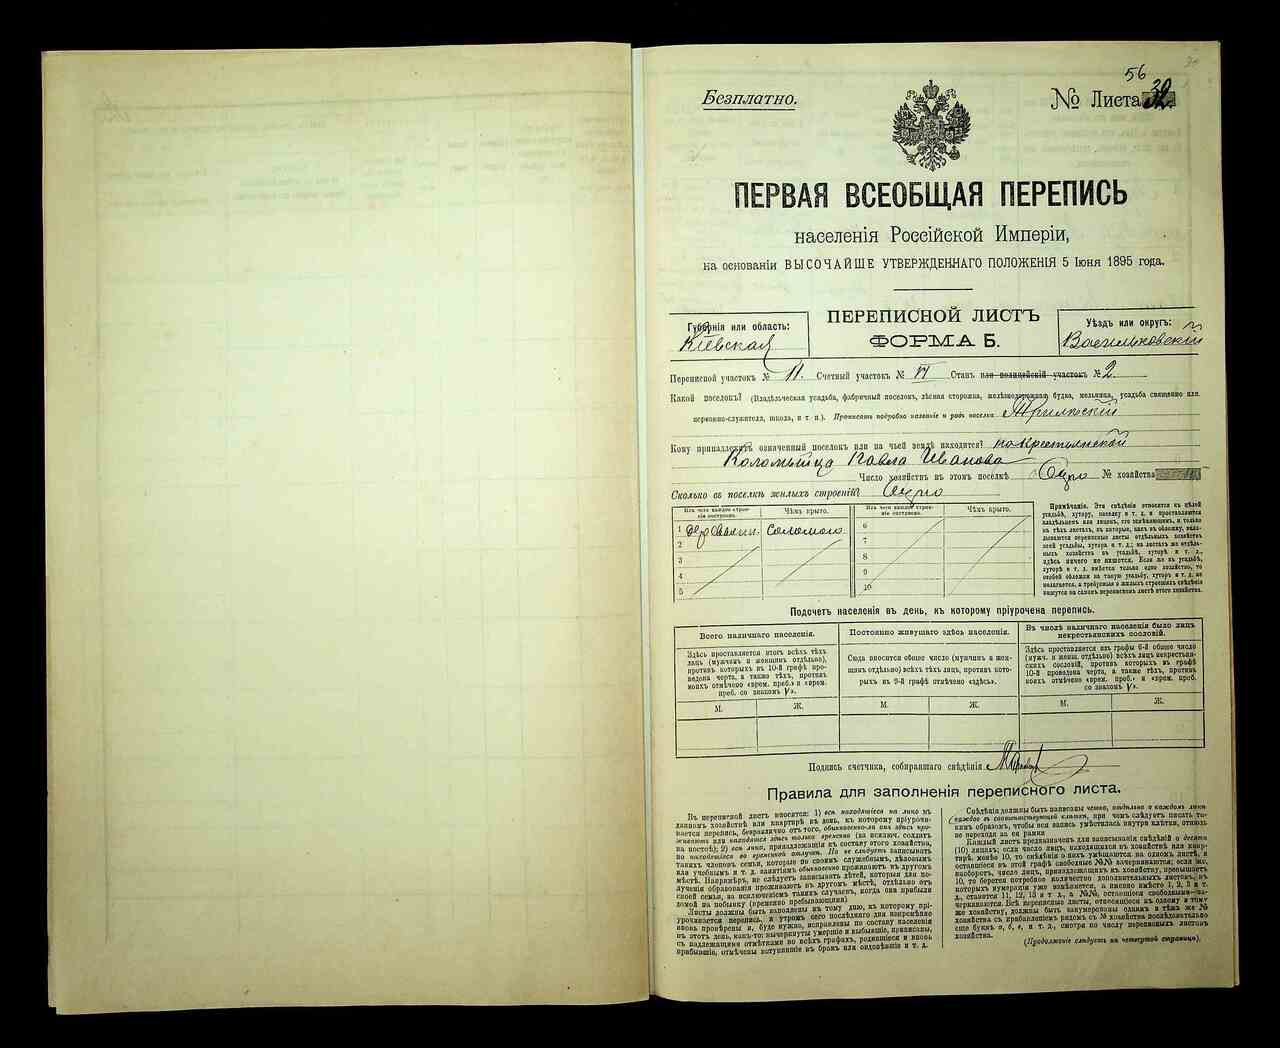 56
Безплатно.
№ Листа 32
ПЕРВАЯ ВСЕОБЩАЯ ПЕРЕПИСЬ
населенія Россійской Имперіи,
на основаніи ВЫСОЧАЙШЕ УТВЕРЖДЕННАГО ПОЛОЖЕНІЯ 5 Іюня 1895 года.
Губернія или область:
Кіевская
ПЕРЕПИСНОЙ ЛИСТЪ
ФОРМА Б.
Уѣздъ или округъ:
Васильковскій
Переписной участокъ № 11. Счетный участокъ № VI Станъ или полицейскій участокъ № 2.
Какой поселокъ? (Владѣльческая усадьба, фабричный поселокъ, лѣсная сторожка, желѣзнодорожная будка, мельница, усадьба священно или
церковно-служителя, школа, и т. п.). Прописать подробно названіе и родъ поселка
Кому принадлежитъ означенный поселокъ или на чьей землѣ находится? на крестьянской
Коломыйца Павла Иванова
Число хозяйствъ въ этомъ поселкѣ Одно № хозяйства
Сколько въ поселкѣ жилыхъ строеній? Одно
Изъ чего каждое строе-
ніе построено.
Чѣмъ крыто.
Изъ чего каждое строе-
ніе построено.
Чѣмъ крыто.
1 деревянн. Соломою 6
2 7
3 8
4 9
5 10
Примѣчаніе. Эти свѣдѣнія относятся къ цѣлой
усадьбѣ, хутору, поселку и т. д. и проставляются
владѣльцемъ или лицомъ, его замѣняющимъ, и только
на тѣхъ листахъ, въ которые, какъ въ обложку, вкла-
дываются переписные листы отдѣльныхъ хозяйствъ
всей усадьбы, хутора и т. д.; на листахъ же отдѣль-
ныхъ хозяйствъ въ усадьбѣ, хуторѣ и т. д.,
здѣсь ничего не пишется. Если же въ усадьбѣ,
хуторѣ и т. д. имѣется только одно хозяйство, то
особой обложки на такую усадьбу, хуторъ и т. д. не
полагается, а требуемыя о жилыхъ строеніяхъ свѣдѣнія
пишутся на самомъ переписномъ листѣ этого хозяйства.
Подсчетъ населенія въ день, къ которому пріурочена перепись.
Всего наличнаго населенія.
Здѣсь проставляется итогъ всѣхъ тѣхъ
лицъ (мужчинъ и женщинъ отдѣльно),
противъ которыхъ въ 10-й графѣ про-
ведена черта, а также тѣхъ, противъ
коихъ отмѣчено «врем. преб.» и «врем.
преб. со знакомъ V».
Постоянно живущаго здѣсь населенія.
Сюда вносится общее число (мужчинъ и жен-
щинъ отдѣльно) всѣхъ тѣхъ лицъ, противъ кото-
рыхъ въ 9-й графѣ отмѣчено «здѣсь».
Въ числѣ наличнаго населенія было лицъ
некрестьянскихъ сословій.
Здѣсь проставляется въ графы 6-й общее число
(мужч. и женщ. отдѣльно) всѣхъ лицъ некрестьян-
скихъ сословій, противъ которыхъ въ графѣ
10-й проведена черта, а также тѣхъ, противъ
коихъ отмѣчено «врем. преб.» и «врем. преб.
со знакомъ V».
М. Ж. М. Ж. М. Ж.
Подпись счетчика, собиравшаго свѣдѣнія
Правила для заполненія переписного листа.
Въ переписной листъ вносятся: 1) всѣ находящіеся на лицо въ
данномъ хозяйствѣ или квартирѣ въ день, къ которому пріурочи-
вается перепись, безразлично отъ того, обыкновенно-ли они здѣсь про-
живаютъ или находятся здѣсь только временно (за исключ. солдатъ
на постоѣ); 2) всѣ лица, принадлежащія къ составу этого хозяйства,
но находящіеся во временной отлучкѣ. Но не слѣдуетъ записывать
такихъ членовъ семьи, которые по своимъ служебнымъ, дѣловымъ
или учебнымъ и т. д. занятіямъ обыкновенно проживаютъ въ другомъ
мѣстѣ. Напримѣръ, не слѣдуетъ записывать дѣтей, которыя для по-
лученія образованія проживаютъ въ другомъ мѣстѣ, отдѣльно отъ
своей семьи, за исключеніемъ такихъ случаевъ, когда они прибыли
домой на побывку (временно пребывающія).
Листы должны быть заполнены къ тому дню, къ которому прі-
урочивается перепись, и утромъ сего послѣдняго дня непремѣнно
вновь провѣрены и, буде нужно, исправлены по составу населенія
въ этотъ день, какъ-то: вычеркнуты умершіе и выбывшіе, приписаны,
съ надлежащими отмѣтками во всѣхъ графахъ, родившіеся и вновь
прибывшіе, отмѣчены вступившіе въ бракъ или овдовѣвшіе и т. д.
Свѣдѣнія должны быть вписаны четко, отдѣльно о каждомъ лицѣ
и каждое въ соотвѣтствующей клѣткѣ, при чемъ слѣдуетъ писать та-
кимъ образомъ, чтобы вся запись умѣстилась внутри клѣтки, отнюдь
не переходя за ея рамки
Каждый листъ предназначенъ для записыванія свѣдѣній о десяти
(10) лицахъ; если число лицъ, находящихся въ хозяйствѣ или квар-
тирѣ, менѣе 10, то свѣдѣнія о нихъ умѣщаются на одномъ листѣ, и
оставшіеся въ этой графѣ свободные №№ зачеркиваются; если же,
наоборотъ, число лицъ, принадлежащихъ къ хозяйству, превышаетъ
10, то берется потребное количество дополнительныхъ листовъ, въ
которыхъ нумерація уже измѣняется, а именно вмѣсто 1, 2, 3 и т.
д. ставится 11, 12, 13 и т. д., а №№, оставшіеся свободными—за-
черкиваются. Всѣ переписные листы, относящіеся къ одному и тому
же хозяйству, должны быть занумерованы однимъ и тѣмъ же №
хозяйства съ прибавленіемъ рядомъ съ № хозяйства послѣдовательно
еще буквъ а, б, в, и т. д., смотря по числу переписныхъ листовъ
хозяйства.
(Продолженіе слѣдуетъ на четвертой страницѣ).